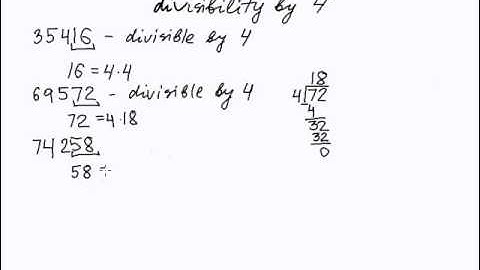 divisibility by 4
35416 - divisible by 4
16 = 4·4
69572 - divisible by 4
72 = 4·18
74258
58 =
18
4 72
4
32
32
0